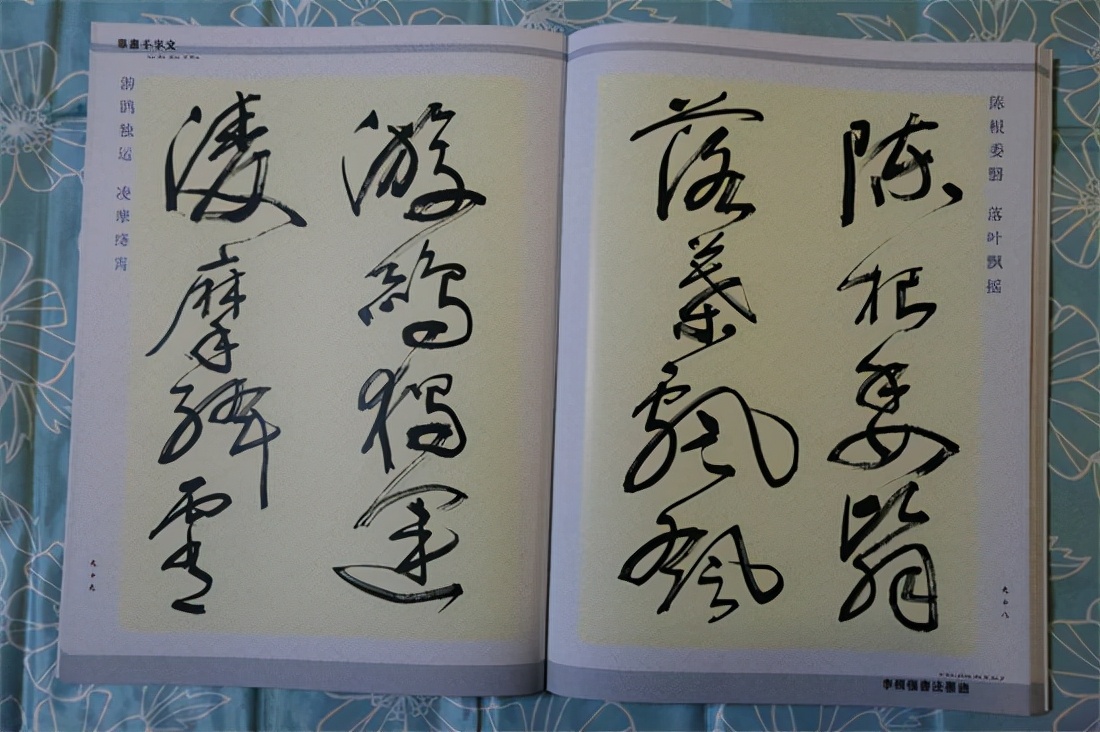 陈根委翳 落叶飘摇
陳根委翳
落葉飄颻
九十八
草書千字文
游鵾獨運
凌摩絳霄
游鹍独运 凌摩绛霄
九十九